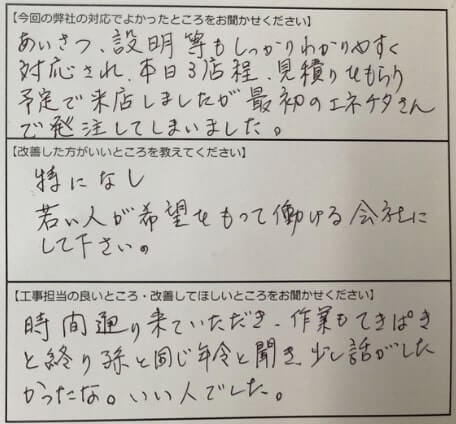 【今回の弊社の対応でよかったところをお聞かせください】
あいさつ、設明等もしっかりわかりやすく
対応され、本日3店程、見積りをもらう
予定で来店しましたが最初のエネチタさん
で発注してしまいました。
【改善した方がいいところを教えてください】
特になし
若い人が希望をもって働ける会社に
して下さい。
【工事担当の良いところ・改善してほしいところをお聞かせください】
時間通り来ていただき、作業もてきぱき
と終り孫と同じ年令と聞き、少し話がした
かったな。いい人でした。